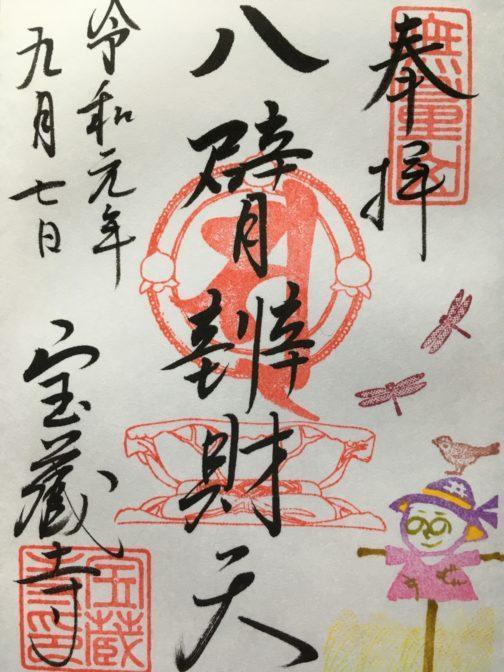 奉拝
八臂辨財天
令和元年
九月七日
宝蔵寺
無量山
宝蔵寺印